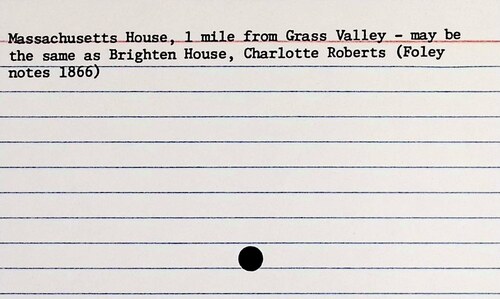 Massachusetts House, 1 mile from Grass Valley - may be
the same as Brighten House, Charlotte Roberts (Foley
notes 1866)